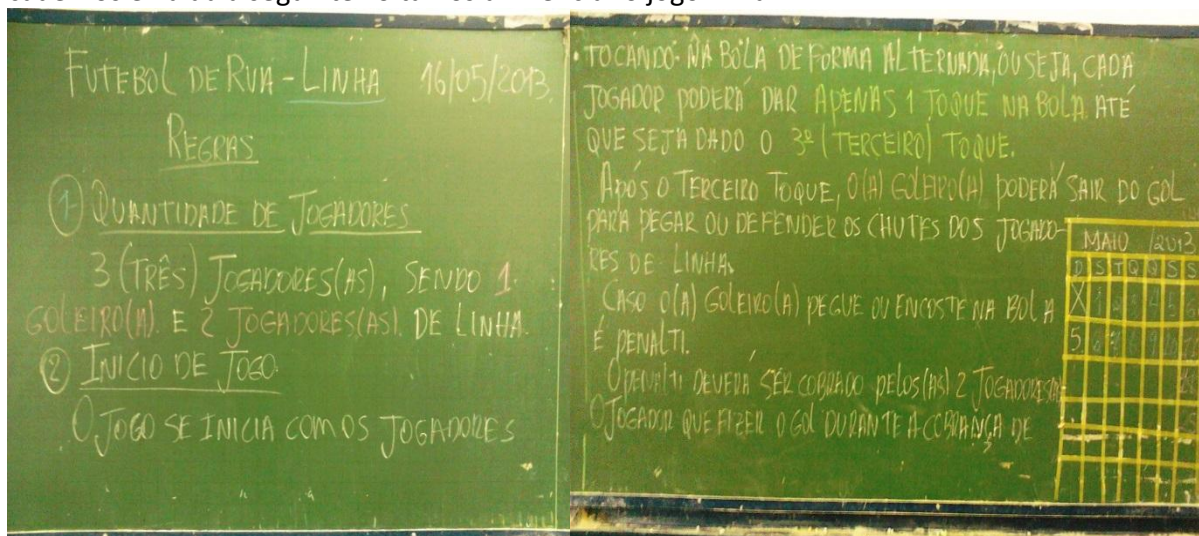 FUTEBOL DE RUA - LINHA 16/05/2013.
REGRAS
1 QUANTIDADE DE JOGADORES
3 (TRÊS) JOGADORES(AS), SENDO 1
GOLEIRO(A). E 2 JOGADORES(AS). DE LINHA.
2 INICIO DE JOGO.
O JOGO SE INICIA COM OS JOGADORES
TOCANDO NA BOLA DE FORMA ALTERNADA, OU SEJA, CADA
JOGADOR PODERÁ DAR APENAS 1 TOQUE NA BOLA ATÉ
QUE SEJA DADO O 3º (TERCEIRO) TOQUE.
APÓS O TERCEIRO TOQUE, O(A) GOLEIRO(A) PODERÁ SAIR DO GOL
PARA PEGAR OU DEFENDER OS CHUTES DOS JOGADO-
RES DE LINHA.
CASO O(A) GOLEIRO(A) PEGUE OU ENCOSTE NA BOLA
É PENALTI.
O PENALTI DEVERÁ SER COBRADO PELOS(AS) 2 JOGADORES(AS)
O JOGADOR QUE FIZER O GOL DURANTE A COBRANÇA DE
MAIO /2013
D S T Q Q S S
X 1 2 3 4
5 6 7 8 9 10 11